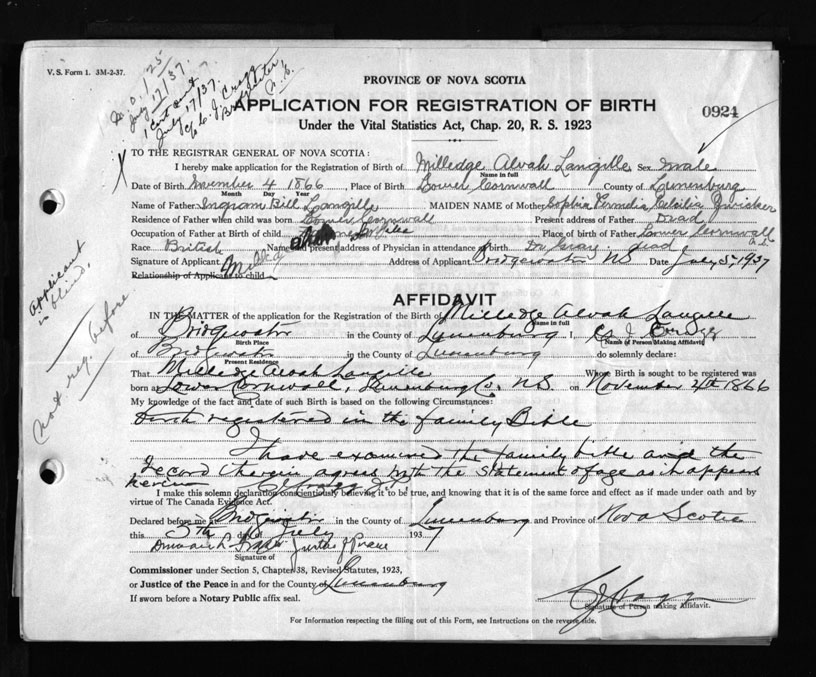 V. S. Form 1. 3M-2-37.
July 17/37.
sent out
July 17/37.
Bridgewater,
N.S.
PROVINCE OF NOVA SCOTIA
APPLICATION FOR REGISTRATION OF BIRTH
0924
Under the Vital Statistics Act, Chap. 20, R. S. 1923
TO THE REGISTRAR GENERAL OF NOVA SCOTIA:
I hereby make application for the Registration of Birth of Milledge Alvah Langille Sex male
Name in full
Date of Birth November 4 1866, Place of Birth Lower Cornwall County of Lunenburg
Month Day Year
Name of Father Ingram Bill Langille MAIDEN NAME of Mother Sophia Permelia Zwicker
Residence of Father when child was born Lower Cornwall Present address of Father Dead
Occupation of Father at Birth of child Place of birth of Father Lower Cornwall
N.S.
Race British Name and present address of Physician in attendance at birth Dr. Gray, dead
Signature of Applicant Address of Applicant Bridgewater NS Date July 5, 1937
Relationship of Applicant to child
Applicant
is blind.
not reg. before
AFFIDAVIT
IN THE MATTER of the application for the Registration of the Birth of Milledge Alvah Langille
Name in full
of Bridgewater in the County of Lunenburg I,
Birth Place Name of Person Making Affidavit
of Bridgewater in the County of Lunenburg do solemnly declare:
Present Residence
That Milledge Alvah Langille Whose Birth is sought to be registered was
born at Lower Cornwall, Lunenburg Co. NS. on November 4th 1866
My knowledge of the fact and date of such Birth is based on the following Circumstances:
Birth registered in the family Bible
I have examined the family bible and the
record therein agrees with the statement of age as it appears
herein
I make this solemn declaration conscientiously believing it to be true, and knowing that it is of the same force and effect as if made under oath and by
virtue of The Canada Evidence Act.
Declared before me at Bridgewater in the County of Lunenburg and Province of Nova Scotia
this 5th day of July 1937
Justice of Peace
Signature of
Commissioner under Section 5, Chapter 38, Revised Statutes, 1923,
or Justice of the Peace in and for the County of Lunenburg
If sworn before a Notary Public affix seal.
Signature of Person making Affidavit.
For Information respecting the filling out of this Form, see Instructions on the reverse side.